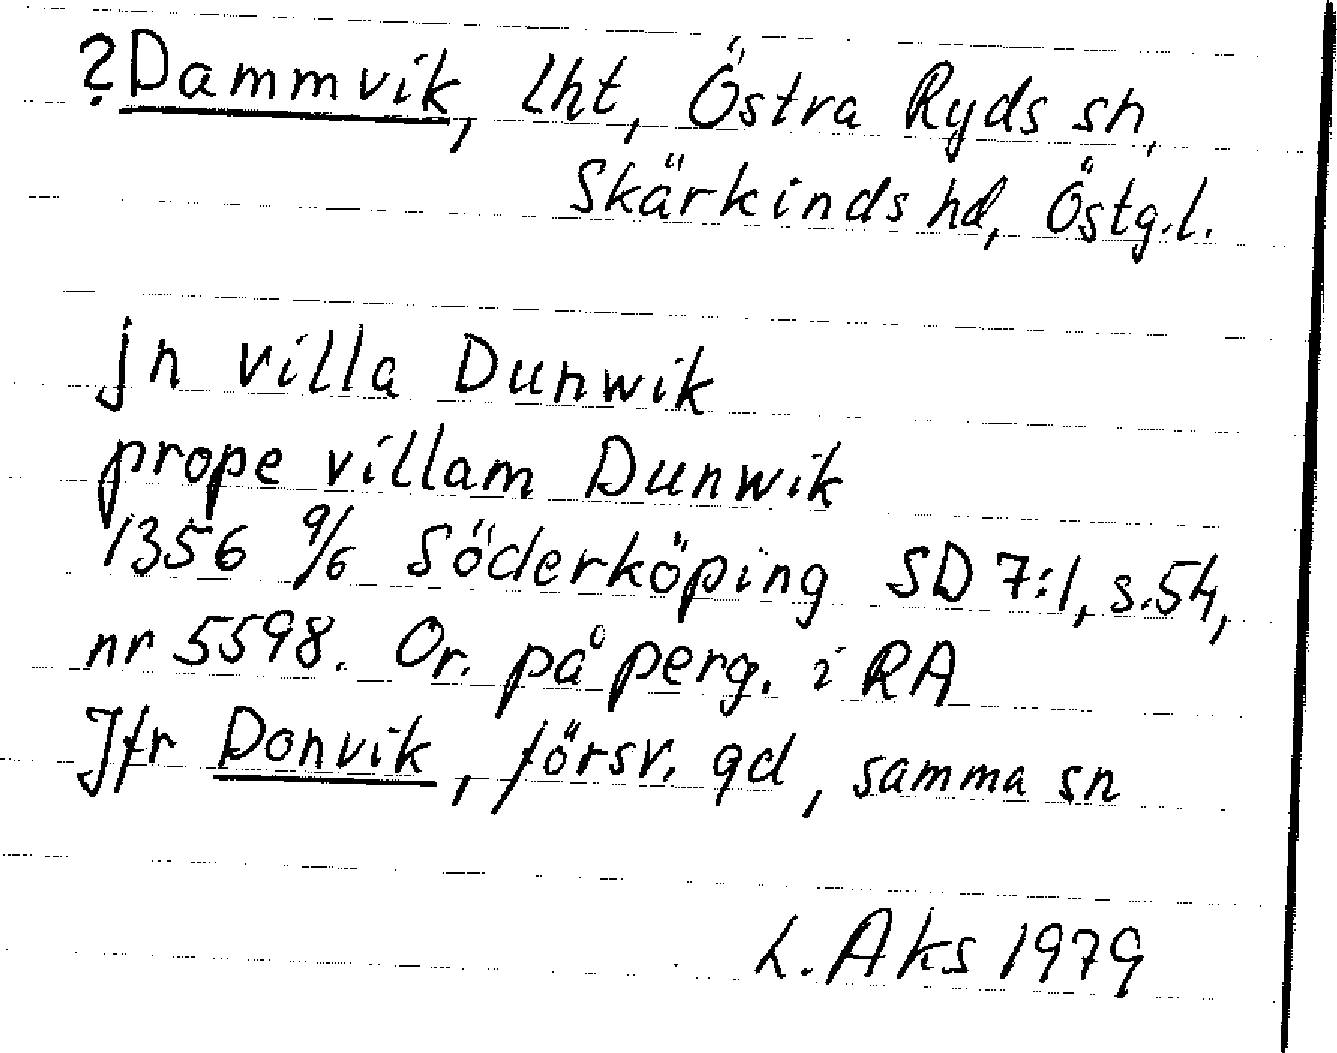 ?Dammvik, Lht, Östra Ryds sn,
Skärkinds hd, Östg.l.
jn villa Dunwik
prope villam Dunwik
1356 9/6 Söderköping SD 7:1, s.54,
nr 5598. Or. på perg. i RA
Jfr Donvik, försv. gd, samma sn
L. Aks 1979